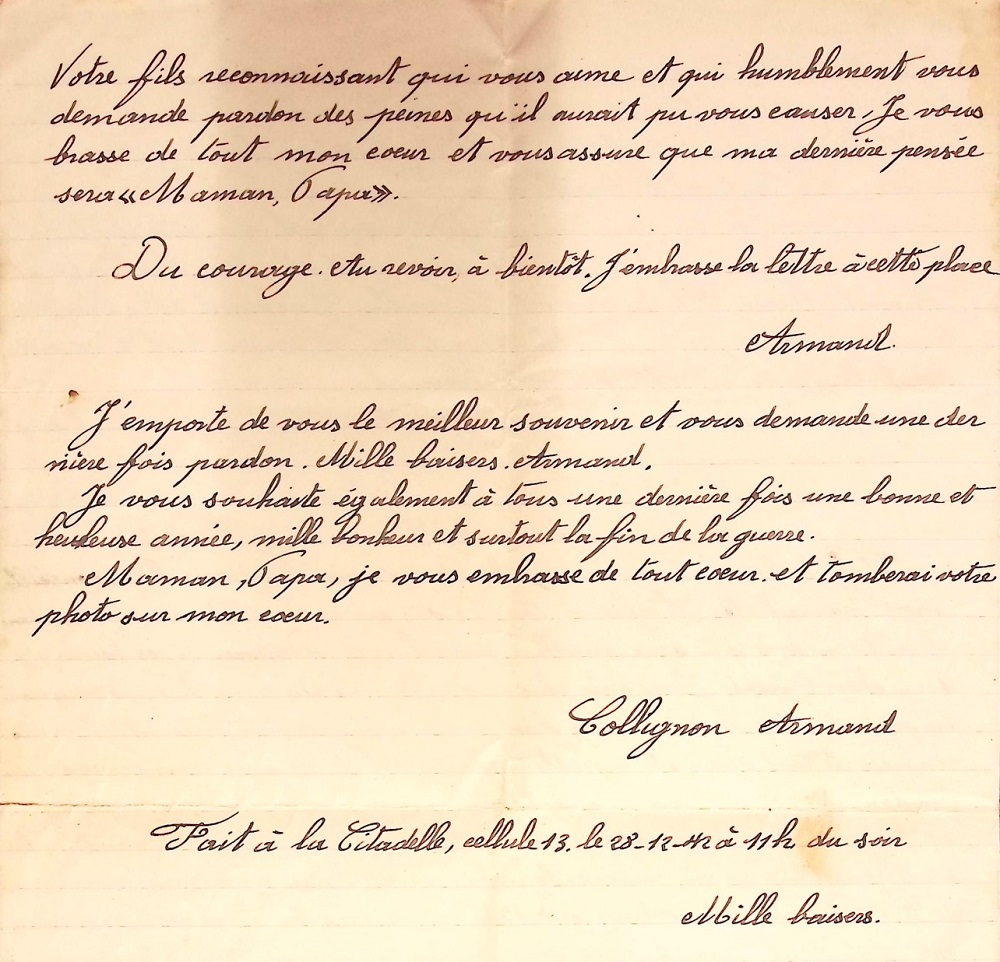 Votre fils reconnaissant qui vous aime et qui humblement vous
demande pardon des peines qu'il aurait pu vous causer, Je vous
brasse de tout mon coeur et vous assure que ma dernière pensée
sera «Maman, Papa».
Du courage. Au revoir, à bientôt. J'embrasse la lettre à cette place
Armand.
J'emporte de vous le meilleur souvenir et vous demande une der
nière fois pardon. Mille baisers. Armand.
Je vous souhaite également à tous une dernière fois une bonne et
heureuse année, mille bonheur et surtout la fin de la guerre.
Maman, Papa, je vous embrasse de tout coeur. et tomberai votre
photo sur mon coeur.
Collignon Armand
Fait à la Citadelle, cellule 13. le 28-12-42 à 11h du soir
Mille baisers.